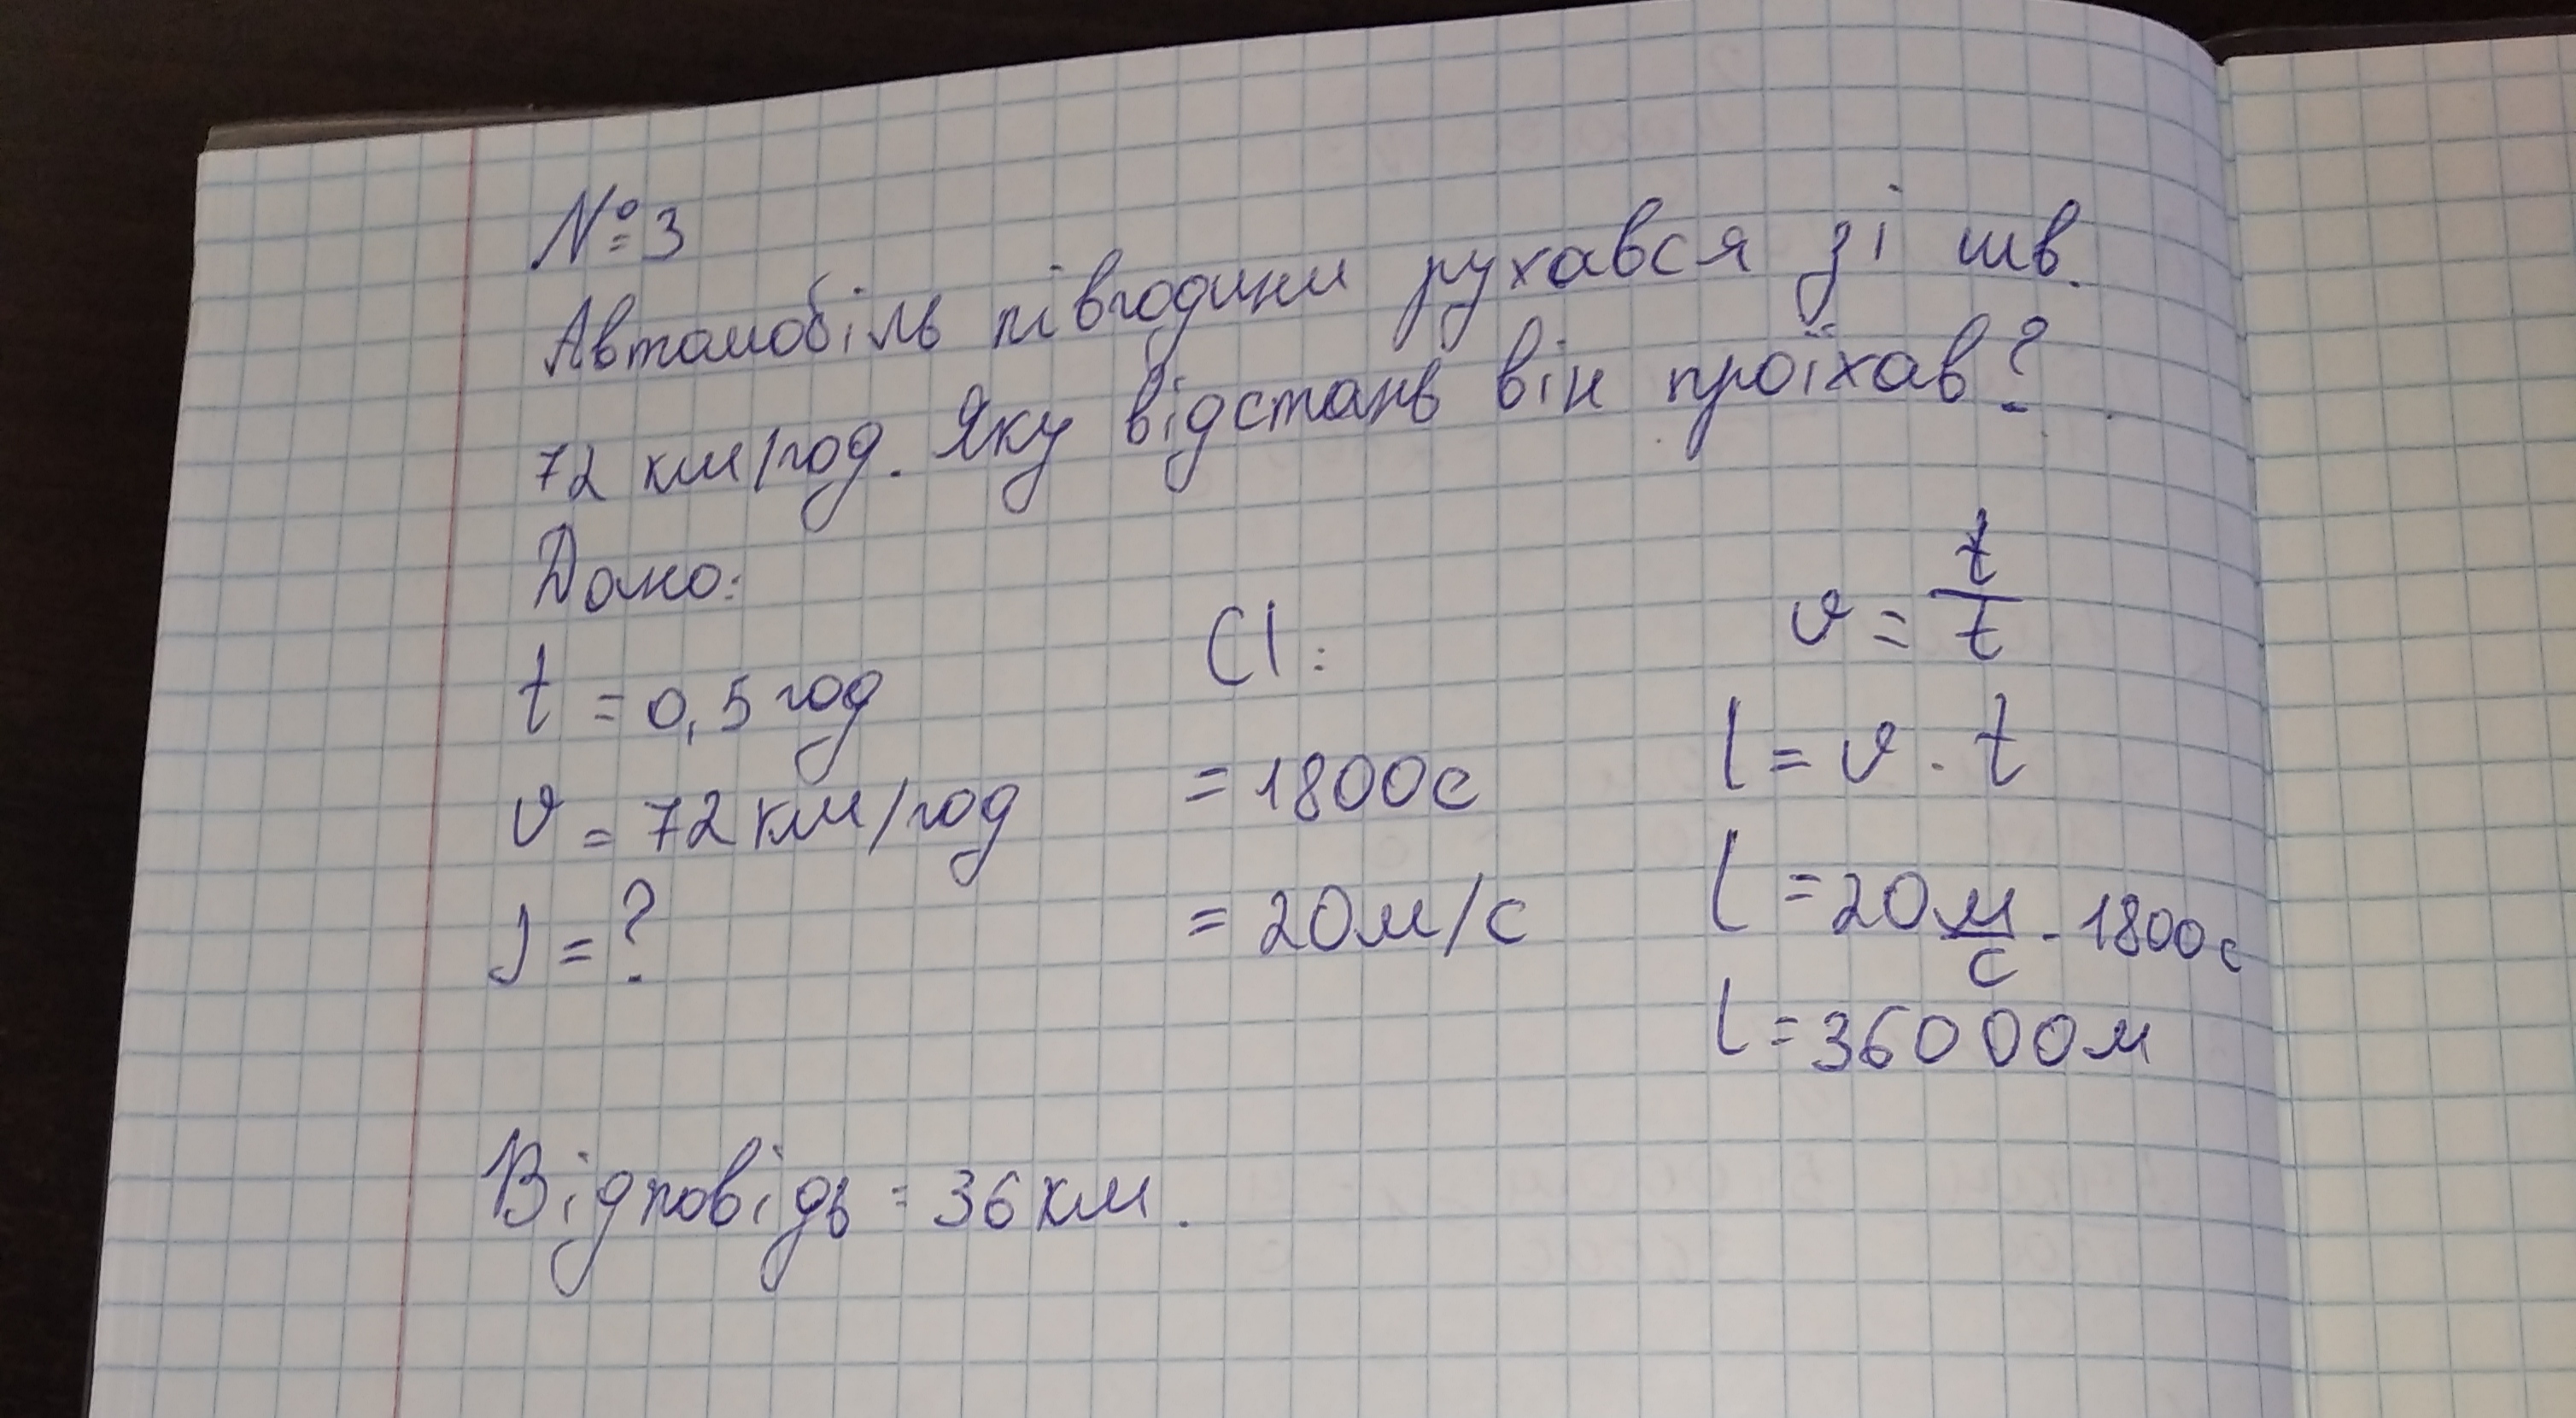 №3
Автомобіль півгодини рухався зі шв.
72 км/год. Яку відстань він проїхав?
Дано:
t = 0,5 год
υ = 72 км/год
l = ?
СІ:
= 1800с
= 20м/с
υ = t/t
l = υ · t
l = 20 м/с · 1800с
l = 36000м
Відповідь = 36 км.